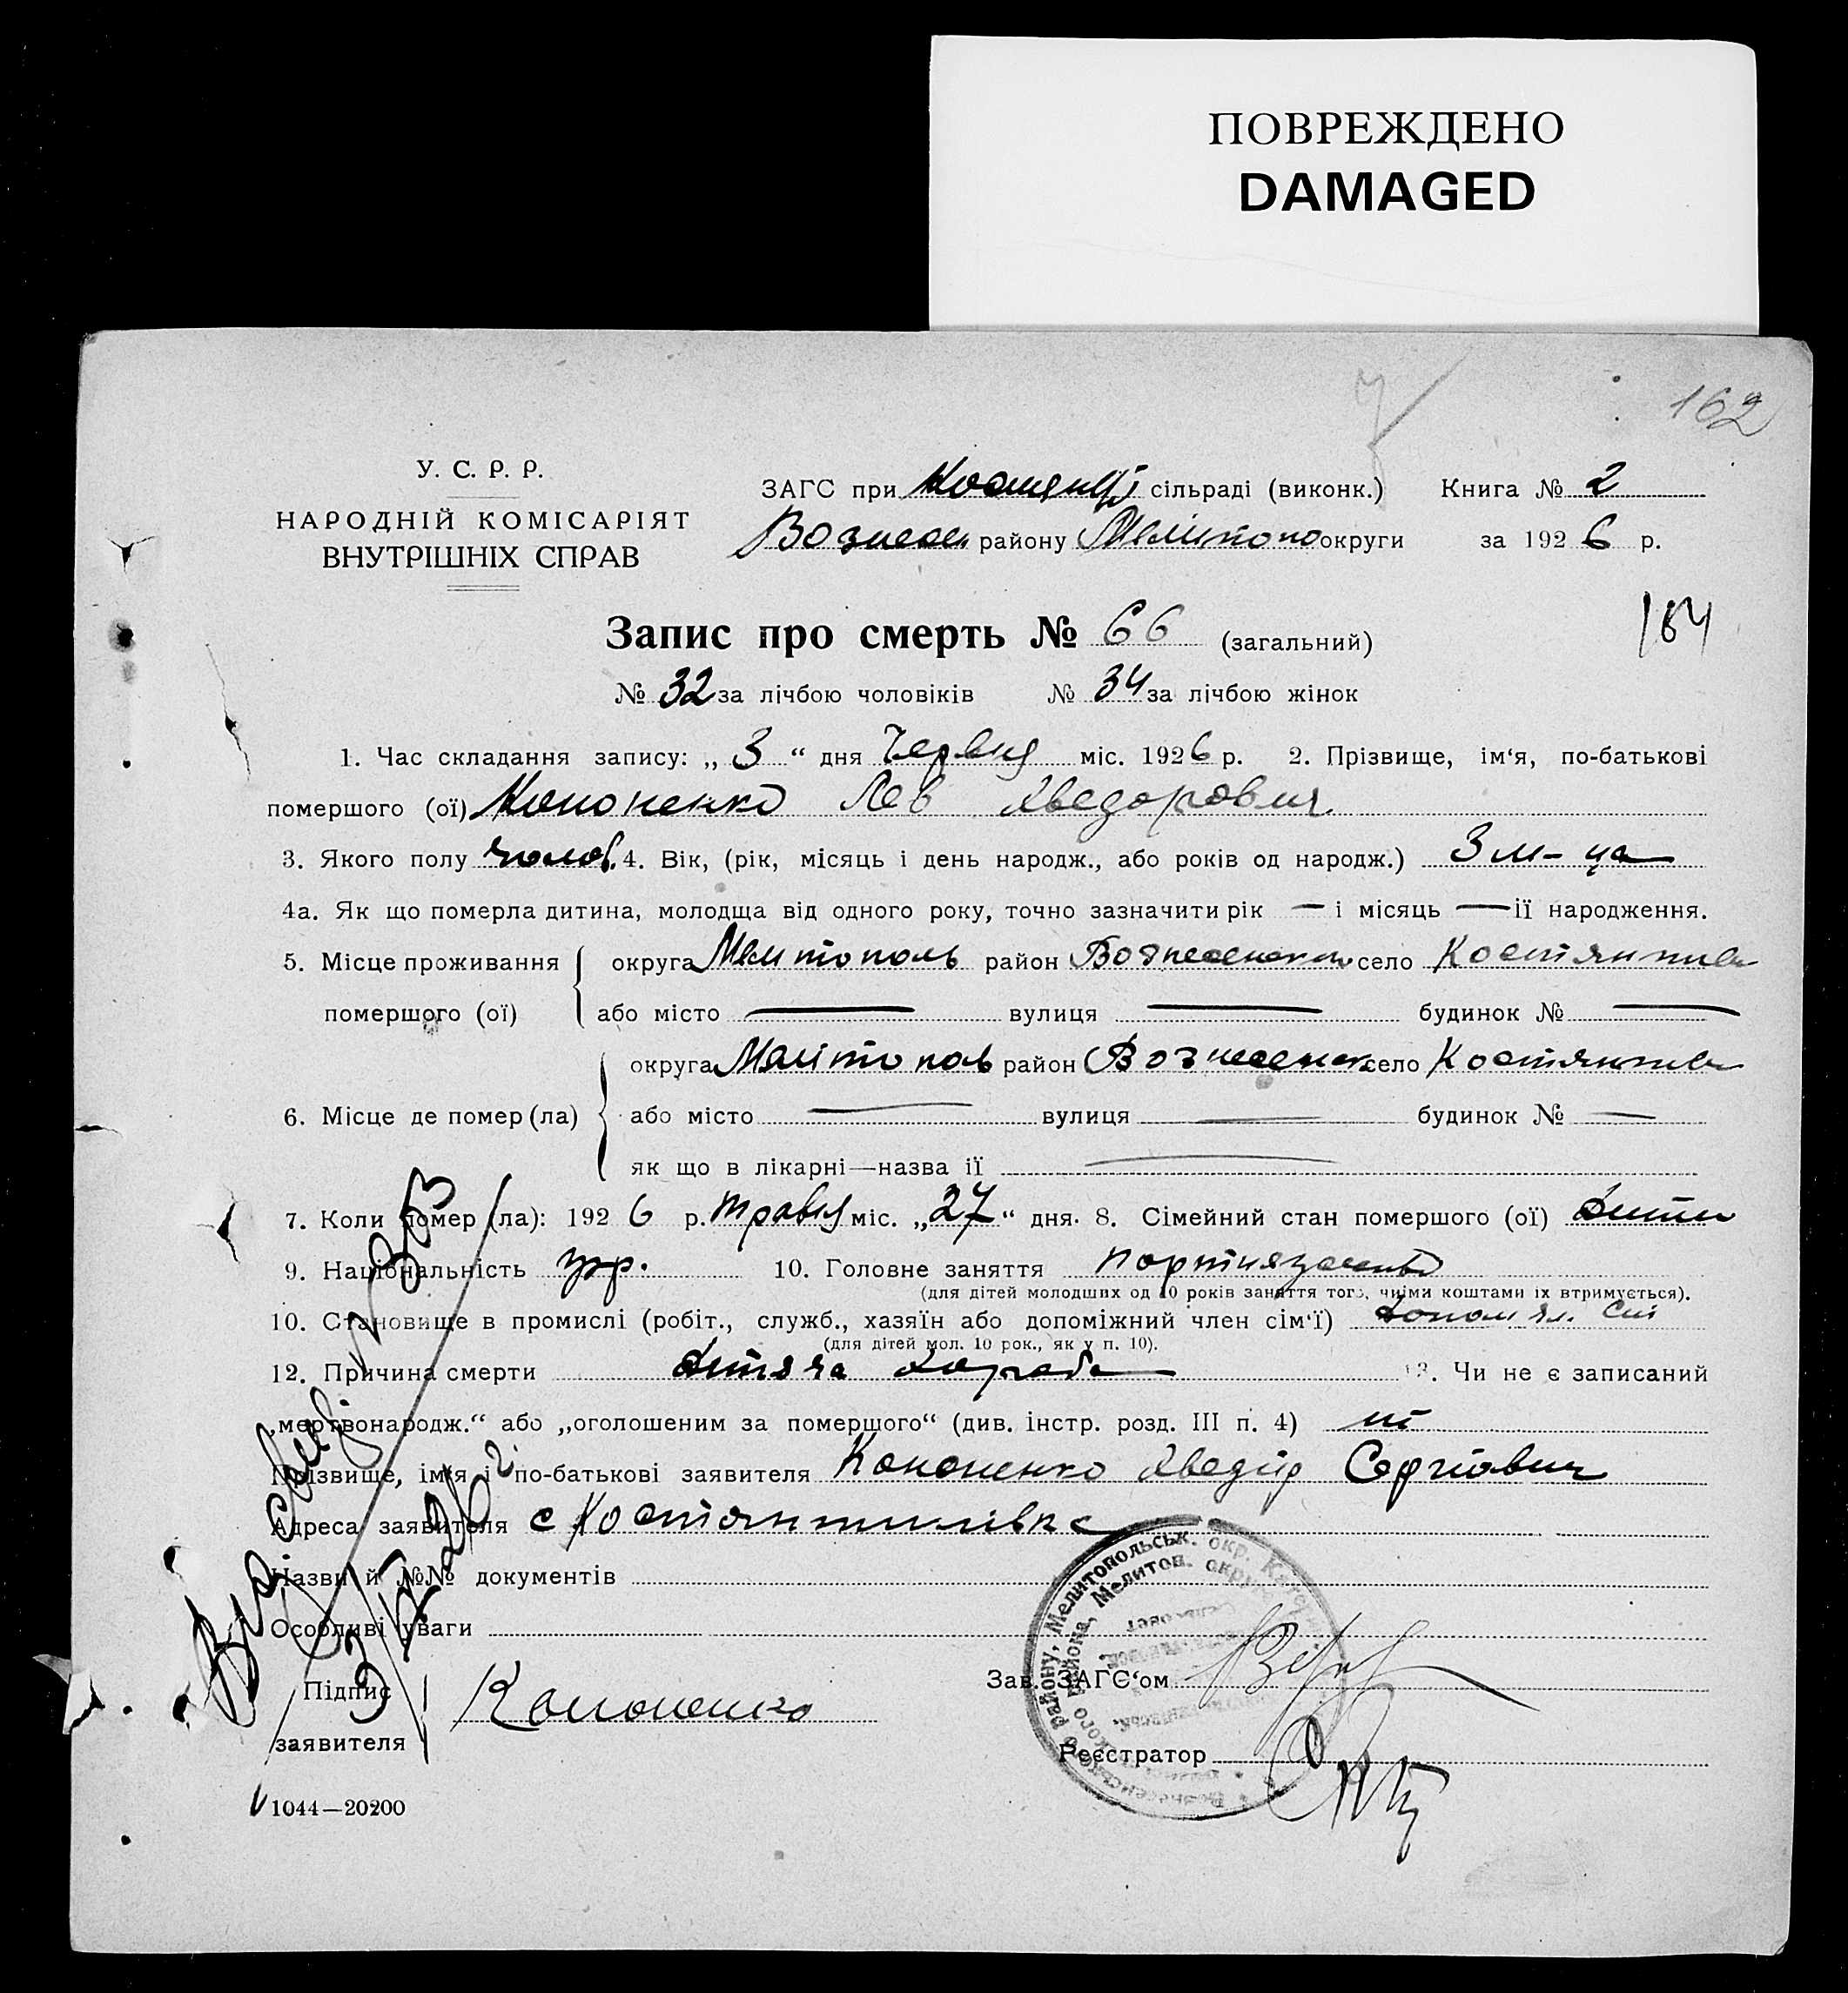 ПОВРЕЖДЕНО
DAMAGED
162
У. С. Р. Р.
НАРОДНІЙ КОМІСАРІЯТ
ВНУТРІШНІХ СПРАВ
ЗАГС при сільраді (виконк.) Книга № 2
Вознесен. району Мелітопо округи за 1926 р.
Запис про смерть № 66 (загальний)
184
№ 32 за лічбою чоловіків № 34 за лічбою жінок
1. Час складання запису: „ 3 “ дня Червня міс. 1926 р. 2. Прізвище, ім‘я, по-батькові
помершого (ої) Кононенко Лев Хведорович
3. Якого полу чолов. 4. Вік, (рік, місяць і день народж., або років од народж.) 3 м-ца
4а. Як що померла дитина, молодща від одного року, точно зазначити рік — і місяць — ії народження.
5. Місце проживання округа Мелитополь район село Костянтив
помершого (ої) або місто — вулиця — будинок № —
округа Мелітополь район Вознесенск село Костянтив
6. Місце де помер (ла) або місто — вулиця — будинок № —
як що в лікарні—назва ії —
7. Коли помер (ла): 1926 р. травня міс. „27“ дня. 8. Сімейний стан помершого (ої)
9. Національність укр. 10. Головне заняття
(для дітей молодших од 10 років заняття того, чиїми коштами їх втримується).
10. Становище в промислі (робіт., служб., хазяїн або допоміжний член сім‘ї) допом чл. сім
(для дітей мол. 10 рок., як у п. 10).
12. Причина смерти дитяча хороба 13. Чи не є записаний
„мертвонародж.“ або „оголошеним за помершого“ (див. інстр. розд. III п. 4) ні
Прізвище, ім‘я і по-батькові заявителя Кононенко Хведір Сергіович
Адреса заявителя с Костянтинівка
Назви й №№ документів
Особливі уваги
Підпис
заявителя Кононенко
Зав. ЗАГС‘ом
Реєстратор
1044—20200